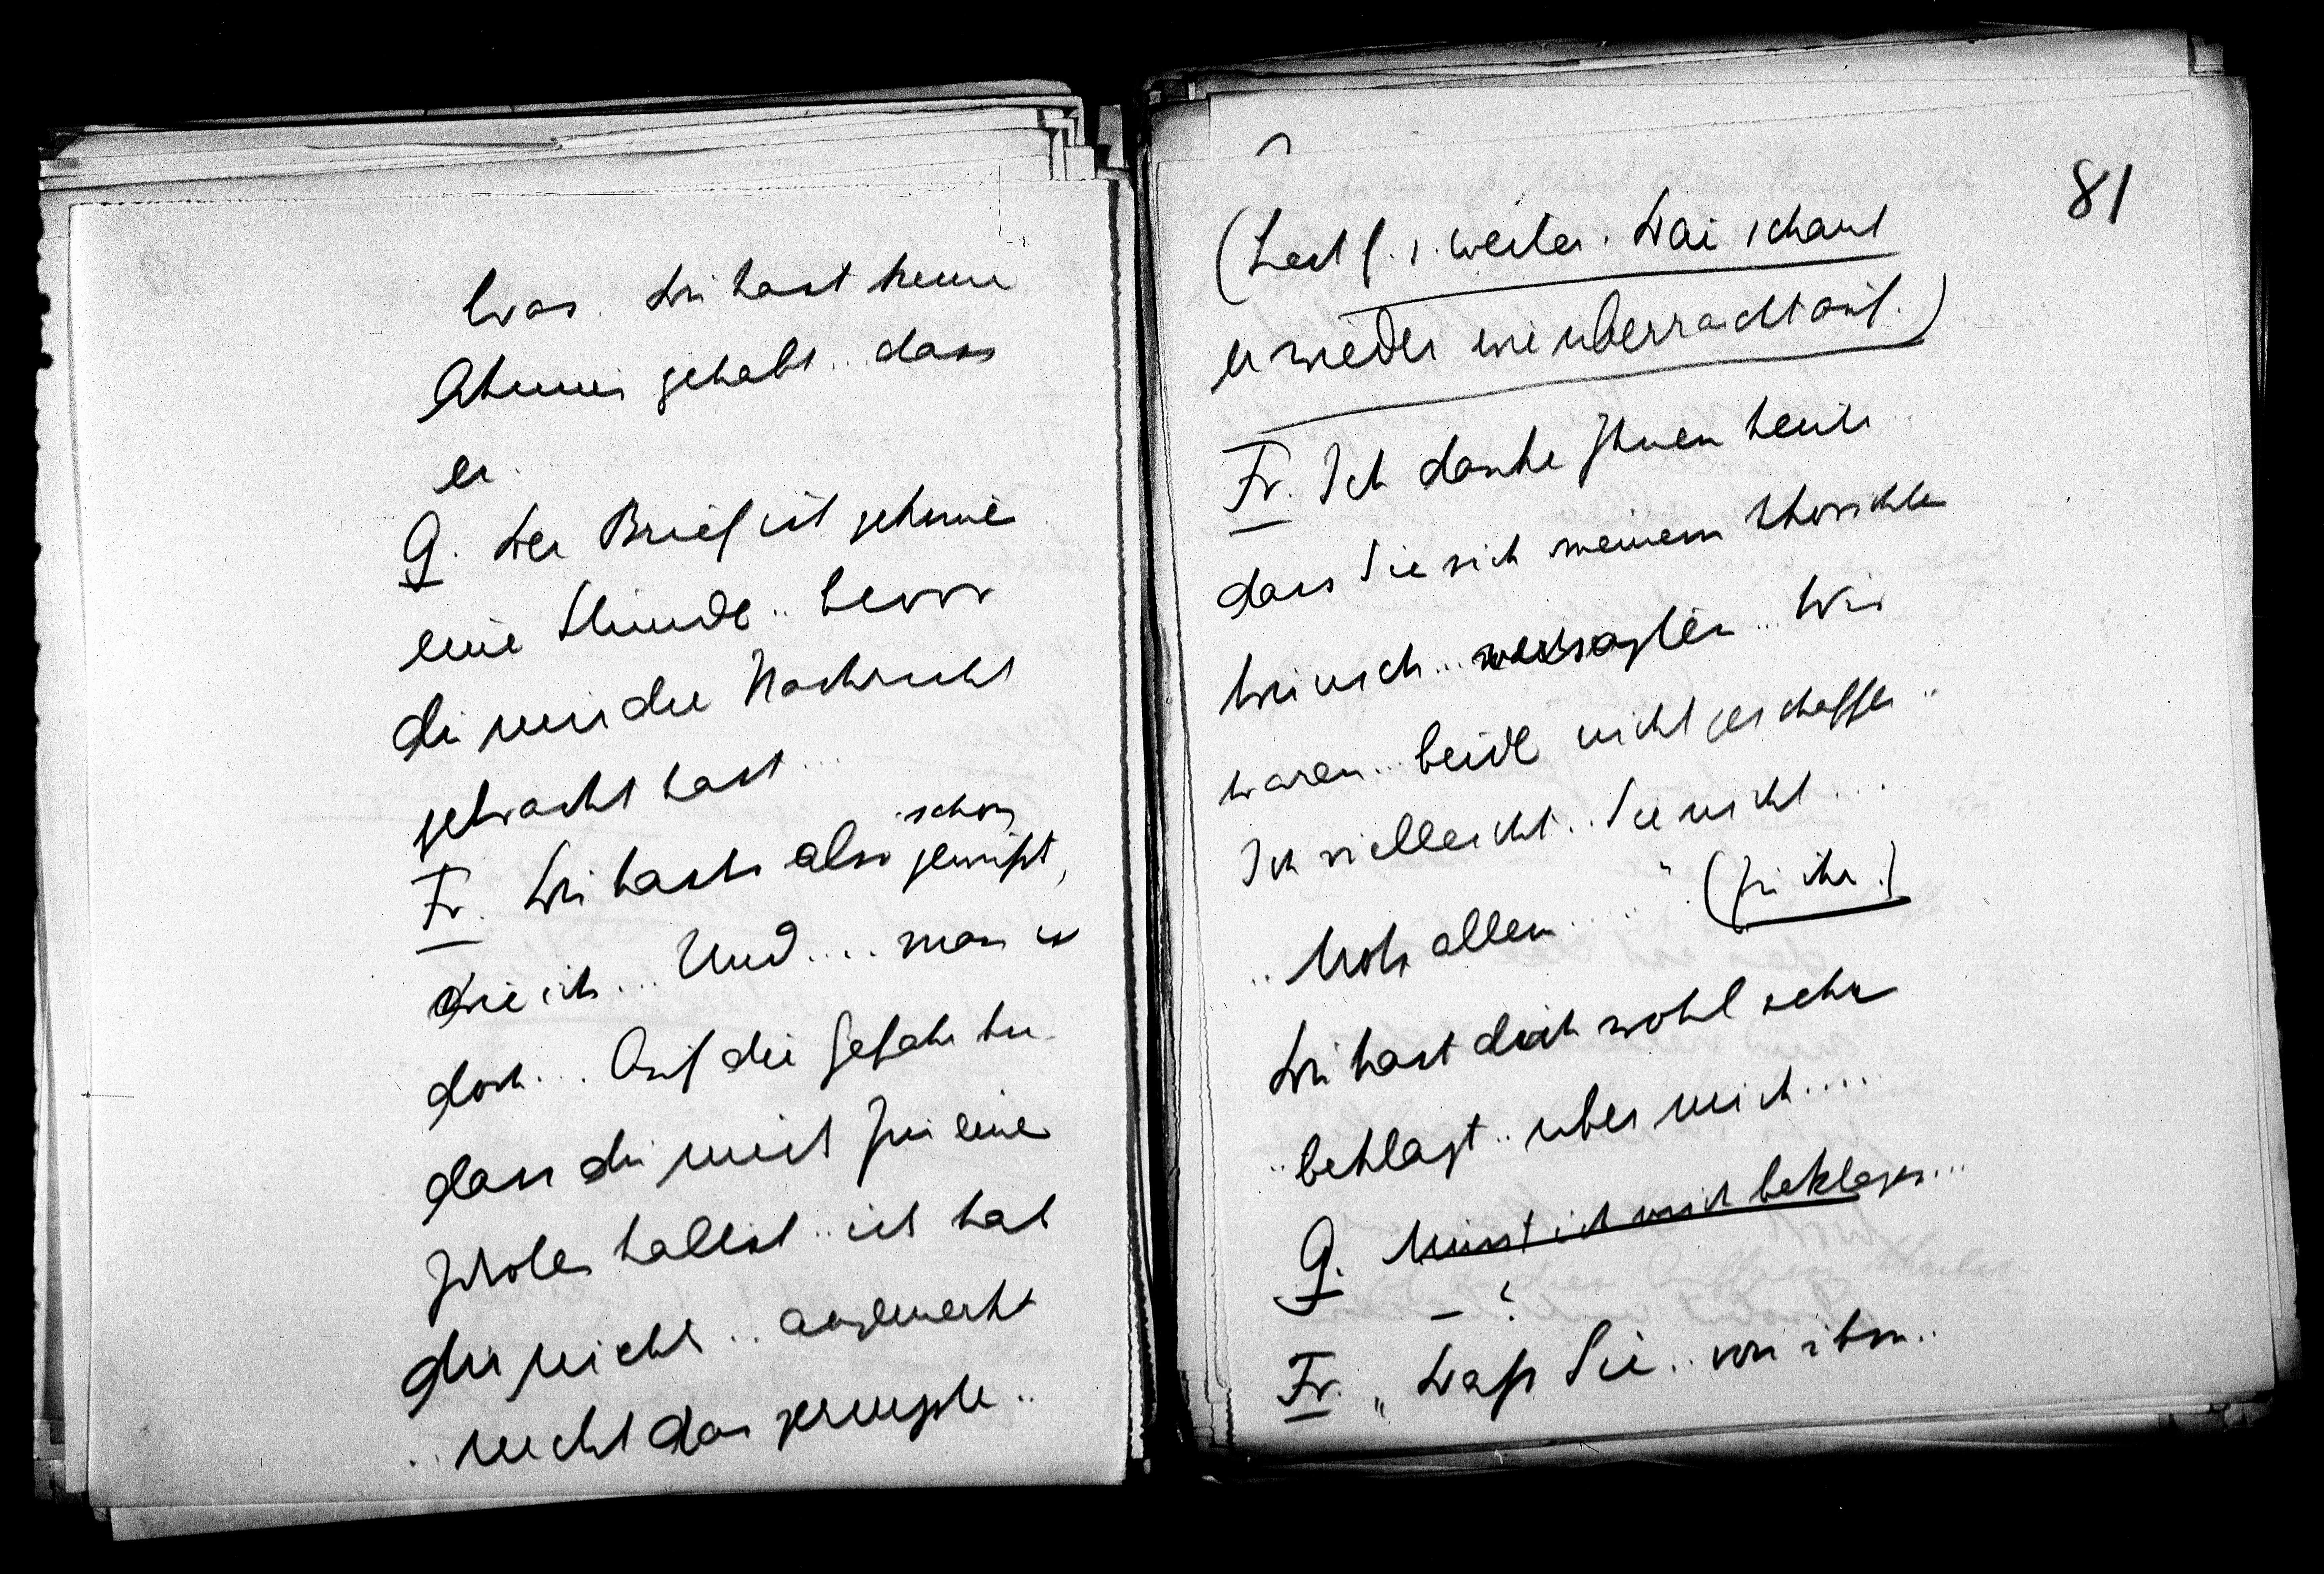 Was. Du hast keine
Ahnung gehabt.. dass
er.
G. Der Brief ist gekommen
eine Stunde.. bevor
du mir die Nachricht
gebracht hast...
Fr. Du hasts also schon gewußt,
wie ich... Und.... man es
doch... Auf die Gefahr hin
dass du mich für eine
hältst.. ich hab
dir nichts.. angemerkt
.. nicht das geringste..
81
(Liest f. s. weiter. Dan schaut
er wieder wie überrascht auf.)
Fr. Ich danke Ihnen heute..
dass Sie sich meinem thörichten
Wunsch... versagten... Wir
waren... beide nicht geschaffen..
Ich vielleicht.. Sie nicht....
.. Trotz allem....." (Zu ihr.)
Du hast dich wohl sehr
.. beklagt.. über mich.....
G. Musst ich mich beklagen...
– ?
Fr. „Daß Sie.. von ihm..